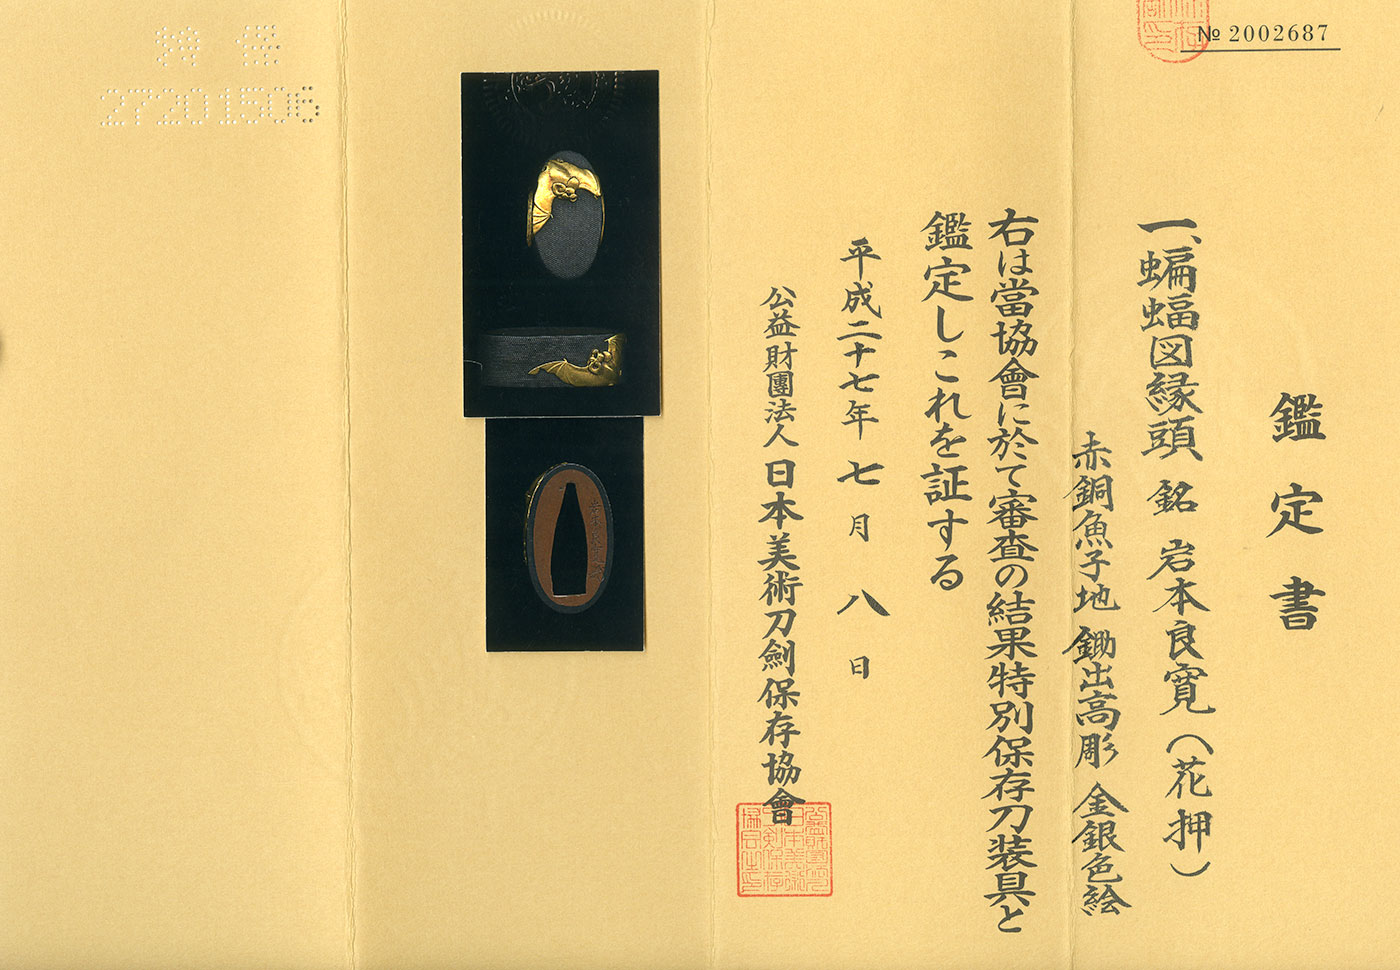 № 2002687
鑑定書
一、蝙蝠図縁頭 銘 岩本良寛(花押)
赤銅魚子地 鋤出高彫 金銀色絵
右は當協會に於て審査の結果特別保存刀装具と
鑑定しこれを証する
平成二十七年七月八日
公益財團法人 日本美術刀劍保存協會
特保
27201506